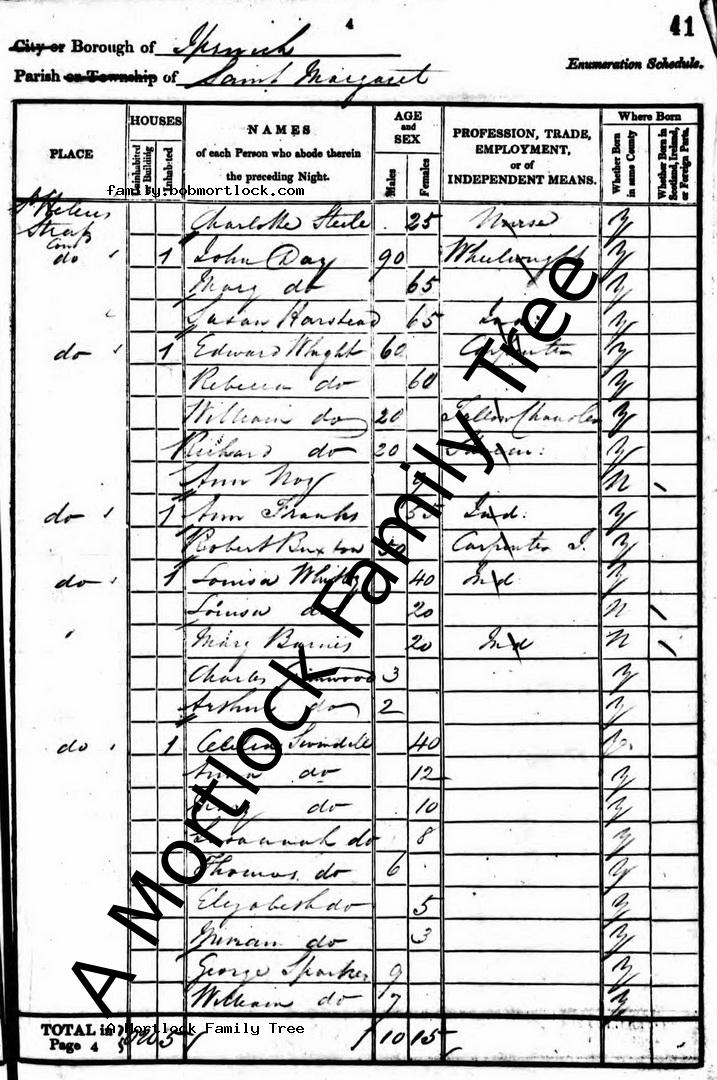 4
41
City or Borough of Ipswich
Parish or Township of Saint Margaret
Enumeration Schedule.
PLACE
HOUSES
Uninhabited or Building
Inhabited
NAMES
of each Person who abode therein
the preceding Night.
AGE
and
SEX
Males
Females
PROFESSION, TRADE,
EMPLOYMENT,
or of
INDEPENDENT MEANS.
Where Born
Whether Born in same County
Whether Born in Scotland, Ireland, or Foreign Parts.
family.bobmortlock.com
St Helens Charlotte Steele 25 Nurse Y
do 1 John Day 90 Wheelwright Y
Mary do 65 Y
Susan Harstead 65 Ind. Y
do 1 Edward Wright 60 Carpenter Y
Rebecca do 60 Y
William do 20 Tallow Chandler Y
Richard do 20 Y
Ann Noy N
do 1 Ann Franks Ind. Y
Robert Buxton 50 Carpenter J. Y
do 1 Louisa 40 Ind Y
Louisa do 20 N
Mary Barnes 20 Ind N
Charles 3 Y
Arthur do 2 Y
do 1 Cecelia Swindell 40 Y
do 12 Y
do 10 Y
Susannah do 8 Y
Thomas do 6 Y
Elizabeth do 5 Y
Miriam do 3 Y
George Sparkes 9 Y
William do 7 Y
TOTAL in Page 4 5 10 15
A Mortlock Family Tree
A Mortlock Family Tree